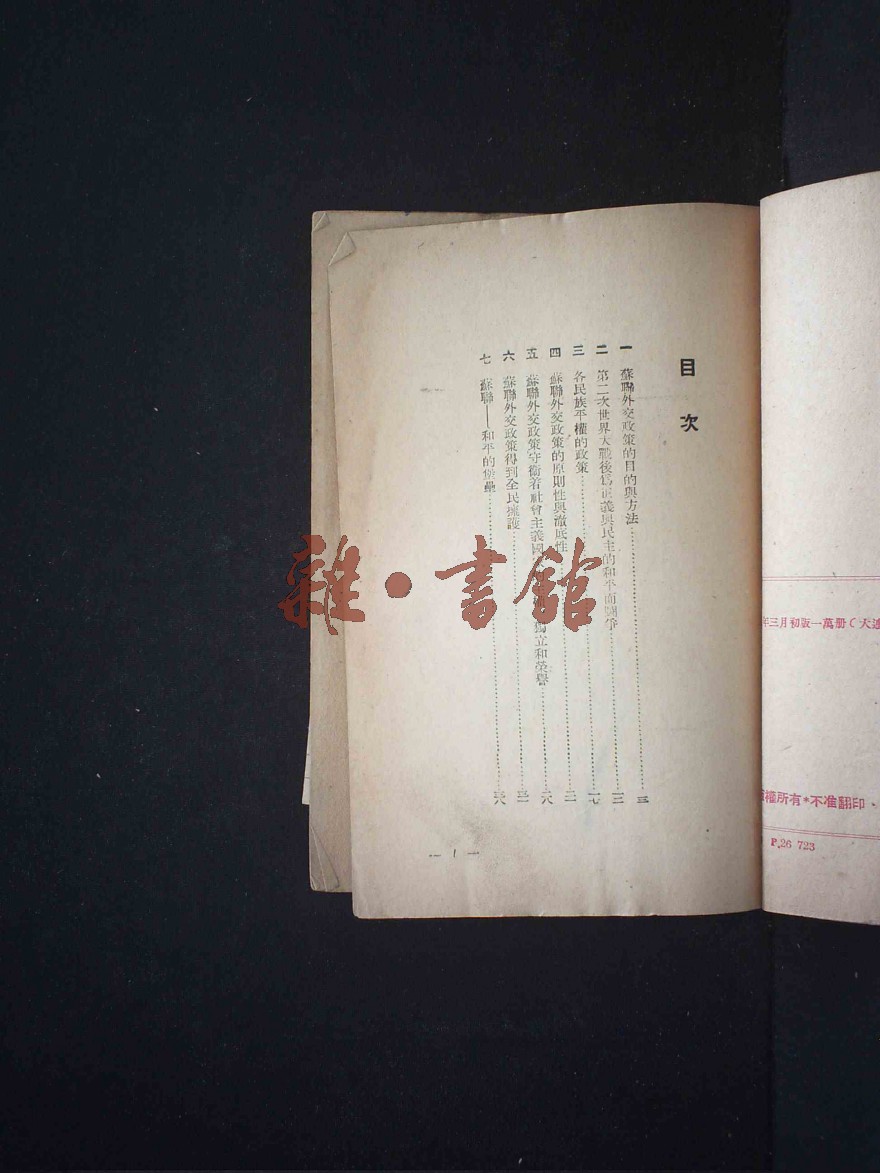 目次
一 蘇聯外交政策的目的與方法……三
二 第二次世界大戰後爲正義與民主的和平而鬭爭……一三
三 各民族平權的政策……一七
四 蘇聯外交政策的原則性與澈底性……二
五 蘇聯外交政策守衞着社會主義國 獨立和榮譽……
六 蘇聯外交政策得到全民擁護……
七 蘇聯——和平的堡壘……
— 1 —
年三月初版一萬册(大連
權所有*不准翻印.
P.26 723
雜·書館